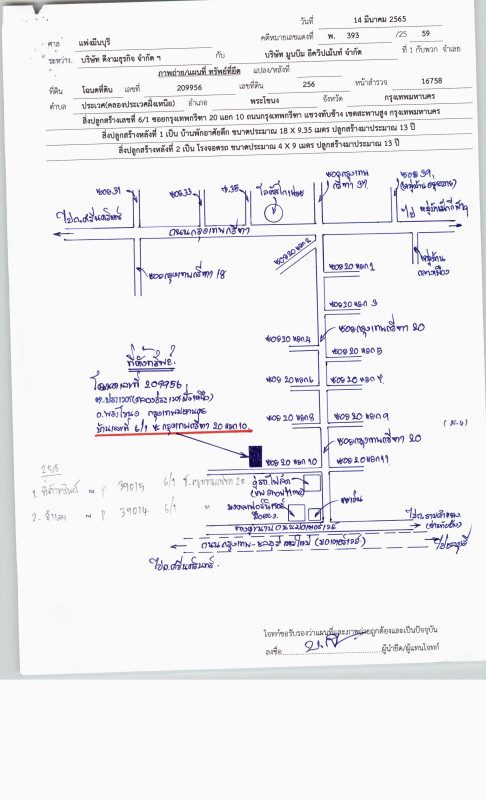 วันที่ 14 มีนาคม 2565
ศาล แพ่งมีนบุรี คดีหมายเลขแดงที่ พ. 393 /25 59
ระหว่าง บริษัท ดีงามธุรกิจ จำกัด ฯ กับ บริษัท มูนบีม อีควิปเม้นท์ จำกัด ที่ 1 กับพวก จำเลย
ภาพถ่าย/แผนที่ ทรัพย์ที่ยึด แปลง/หลังที่
ที่ดิน โฉนดที่ดิน เลขที่ 209956 เลขที่ดิน 256 หน้าสำรวจ 16758
ตำบล ประเวศ(คลองประเวศฝั่งเหนือ) อำเภอ พระโขนง จังหวัด กรุงเทพมหานคร
สิ่งปลูกสร้างเลขที่ 6/1 ซอยกรุงเทพกรีฑา 20 แยก 10 ถนนกรุงเทพกรีฑา แขวงทับช้าง เขตสะพานสูง กรุงเทพมหานคร
สิ่งปลูกสร้างหลังที่ 1 เป็น บ้านพักอาศัยตึก ขนาดประมาณ 18 X 9.35 เมตร ปลูกสร้างมาประมาณ 13 ปี
สิ่งปลูกสร้างหลังที่ 2 เป็น โรงจอดรถ ขนาดประมาณ 4 X 9 เมตร ปลูกสร้างมาประมาณ 13 ปี
ซอย 31
ซอย 33
ซ.35
โลตัสโกเฟรช
ซอยกรุงเทพกรีฑา 37
ซอย 39,
ไปถ.ศรีนครินทร์
ถนนกรุงเทพกรีฑา
ซอยกรุงเทพกรีฑา 18
ซอย 20 แยก 2
ซอย 20 แยก 1
หมู่บ้าน
กลางเมือง
ซอย 20 แยก 3
ซอยกรุงเทพกรีฑา 20
ซอย 20 แยก 4
ซอย 20 แยก 5
ที่ตั้งทรัพย์.
โฉนดเลขที่ 209956
ต.ประเวศ(คลองประเวศฝั่งเหนือ)
อ.พระโขนง กรุงเทพมหานคร
บ้านเลขที่ 6/1 ซ.กรุงเทพกรีฑา 20 แยก 10
ซอย 20 แยก 6
ซอย 20 แยก 7
ซอย 20 แยก 8
ซอย 20 แยก 9
ซอยกรุงเทพกรีฑา 20
ซอย 20 แยก 10
ซอย 20 แยก 11
1. ที่ตั้งทรัพย์ 39015 6/1 ซ.กรุงเทพกรีฑา 20
2. จำเลย 39014 6/1 "
ถนนกรุงเทพ-ชลบุรี สายใหม่ (มอเตอร์เวย์)
ไปชลบุรี
ไปถ.ศรีนครินทร์.
โจทก์ขอรับรองว่าแผนที่และภาพถ่ายถูกต้องและเป็นปัจจุบัน
ลงชื่อ ผู้นำยึด/ผู้แทนโจทก์